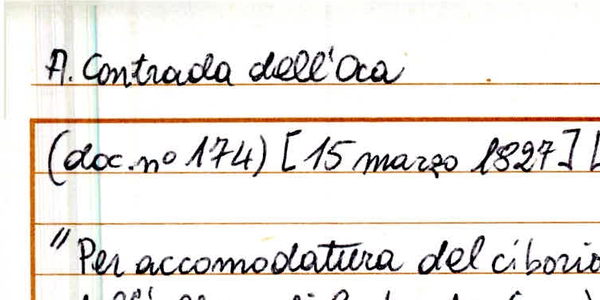 A. Contrada dell'Oca
(doc. nº 174) [15 marzo 1827] [
"Per accomodatura del ciborio